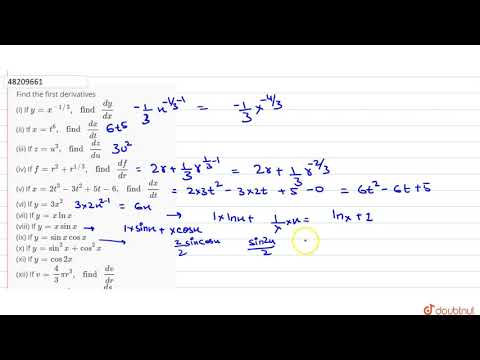 48209661
Find the first derivatives
(i) If y = x^{-1/3}, find dy/dx -1/3 x^{-1/3-1} = -1/3 x^{-4/3}
(ii) If x = t^6, find dx/dt 6t^5
(iii) If z = u^3, find dz/du 3u^2
(iv) If f = r^2 + r^{1/3}, find df/dr = 2r + 1/3 r^{1/3-1} = 2r + 1/3 r^{-2/3}
(v) If x = 2t^3 - 3t^2 + 5t - 6, find dx/dt = 2×3t^2 - 3×2t + 5 - 0 = 6t^2 - 6t + 5
(vi) If y = 3x^2 3×2x^{2-1} = 6x
(vii) If y = x ln x → 1×lnx + 1/x ×x = lnx + 1
(viii) If y = x sin x → 1×sinx + xcosx
(ix) If y = sin x cos x → 2sinxcosx/2 sin2x/2
(x) If y = sin^2 x + cos^2 x
(xi) If y = cos 2x
(xii) If v = 4/3 πr^3, find dv/dr
doubtnut